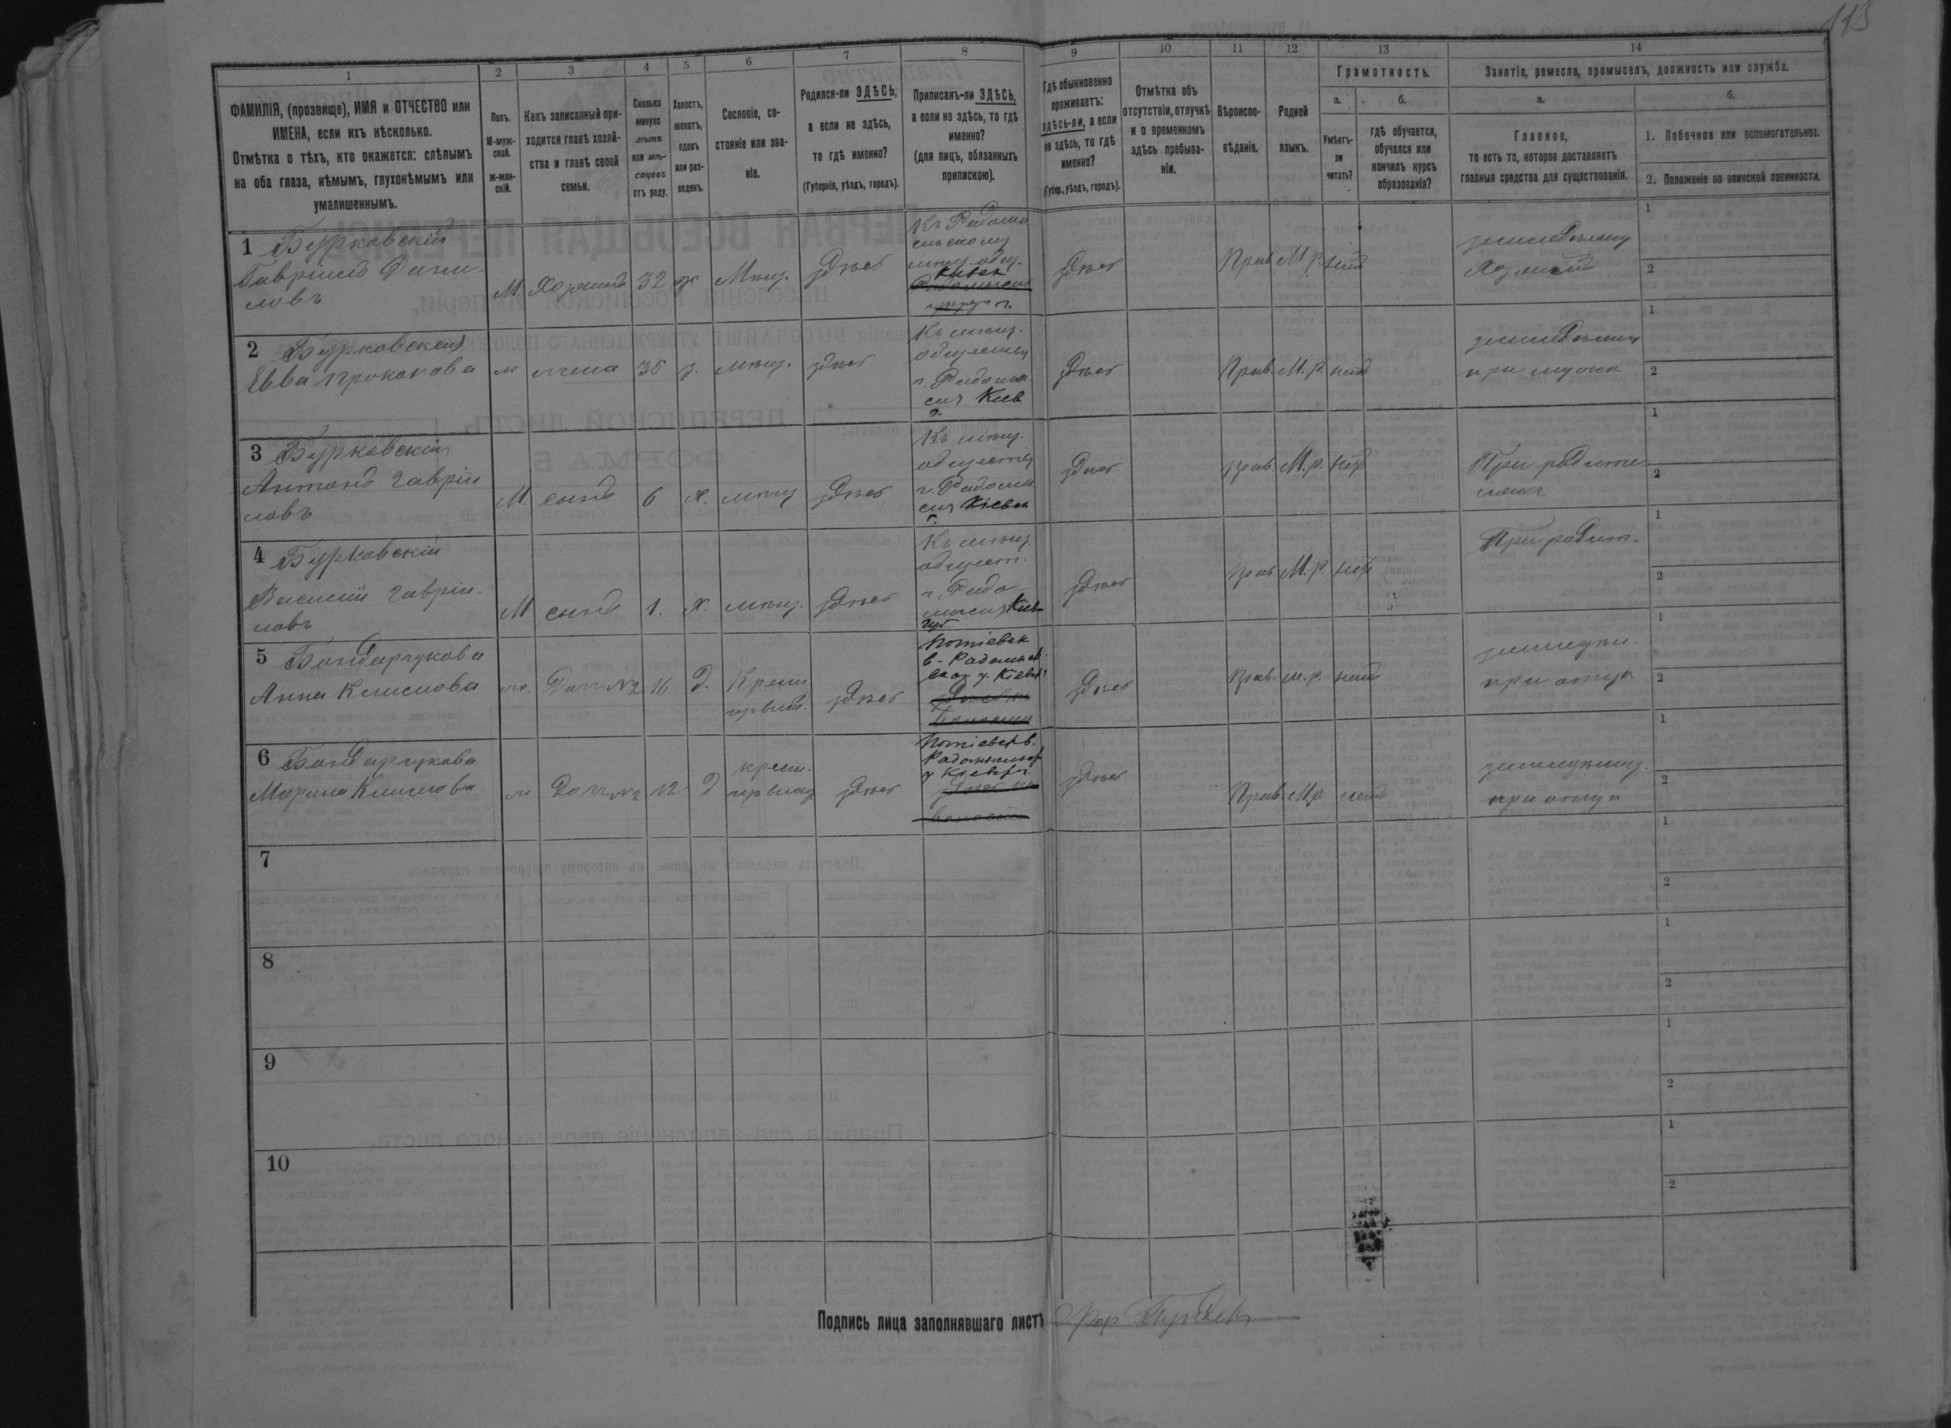 113
1
2
3
4
5
6
7
8
9
10
11
12
13
14
ФАМИЛІЯ, (прозвище), ИМЯ и ОТЧЕСТВО или
ИМЕНА, если ихъ нѣсколько.
Отмѣтка о тѣхъ, кто окажется: слѣпымъ
на оба глаза, нѣмымъ, глухонѣмымъ или
умалишеннымъ.
Полъ.
М-муж-
ской.
ж-жен-
скій.
Какъ записанный при-
ходится главѣ хозяй-
ства и главѣ своей
семьи.
Сколько
минуло
лѣтъ
или мѣ-
сяцевъ
отъ роду.
Холостъ,
женатъ,
вдовъ
или раз-
веденъ.
Сословіе, со-
стояніе или зва-
ніе.
Родился-ли ЗДѢСЬ,
а если не здѣсь,
то гдѣ именно?
(Губернія, уѣздъ, городъ).
Приписанъ-ли ЗДѢСЬ,
а если не здѣсь, то гдѣ
именно?
(для лицъ, обязанныхъ
припискою).
Гдѣ обыкновенно
проживаетъ:
здѣсь-ли, а если
не здѣсь, то гдѣ
именно?
(Губер., уѣздъ, городъ).
Отмѣтка объ
отсутствіи, отлучкѣ
и о временномъ
здѣсь пребыва-
ніи.
Вѣроиспо-
вѣданіе.
Родной
языкъ.
Грамотность.
а.
б.
Умѣетъ-
ли
читать?
гдѣ обучается,
обучался или
кончилъ курсъ
образованія?
Занятіе, ремесло, промыселъ, должность или служба.
а.
б.
Главное,
то есть то, которое доставляетъ
главныя средства для существованія.
1. Побочное или вспомогательное.
2. Положеніе по воинской повинности.
1 Бурковскій
Гавріилъ Дани-
ловъ
М. Хозяинъ 32 ж Мѣщ. здѣсь
Къ Радомы
сльскому
мѣщ. общ.
Кіевск
г.
здѣсь Прав М.р. нѣтъ
земледѣлец
Хозяинъ
1
2
2 Бурковская
Евва Прокопова
ж жена 36 з. мѣщ. здѣсь
Къ мѣщ.
обществу
г. Радомы
сля Кіев
г.
здѣсь Прав. М.р. нѣтъ
земледѣлец
при мужѣ
1
2
3 Бурковскій
Антонъ Гавріи
ловъ
М. сынъ 6 х. мѣщ здѣсь
Къ мѣщ.
обществу
г. Радомы
сля Кіевск
г.
здѣсь прав. М.р. нѣтъ
При родите
ляхъ
1
2
4 Бурковскій
Василій Гавріи-
ловъ
М сынъ 1. х. мѣщ. здѣсь
Къ мѣщ.
общест.
г. Радо
мысля Кіев
губ
здѣсь прав. М.р. нѣтъ
При родит.
1
2
5 Бондарчукова
Анна Климова
ж. Доч №2 16 д. Крест здѣсь
Потіевск
в. Радомысл
ск. у. Кіевск
здѣсь прав. м.р. нѣтъ
при отцѣ
1
2
6 Бондарчукова
Марина Климова
ж. Доч №2 12 д крест. здѣсь
Потіевск в.
Радомысльск
у Кіевск г.
здѣсь Прав. М.р. нѣтъ
при отцѣ
1
2
7
1
2
8
1
2
9
1
2
10
1
2
Подпись лица заполнявшаго листъ